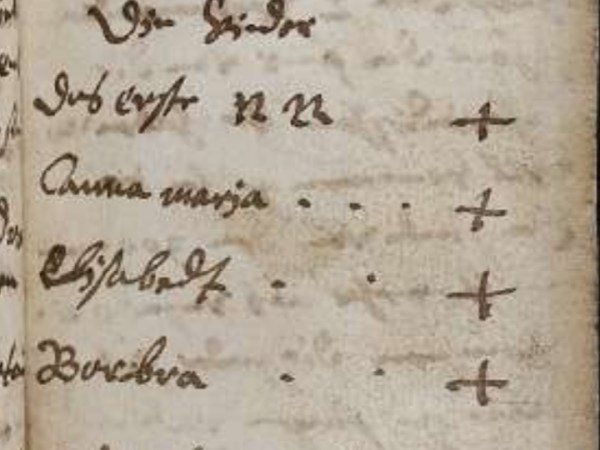 Die Kinder
das erste N N +
Anna maria . . . +
Elisabedt . . +
Barbra . . +